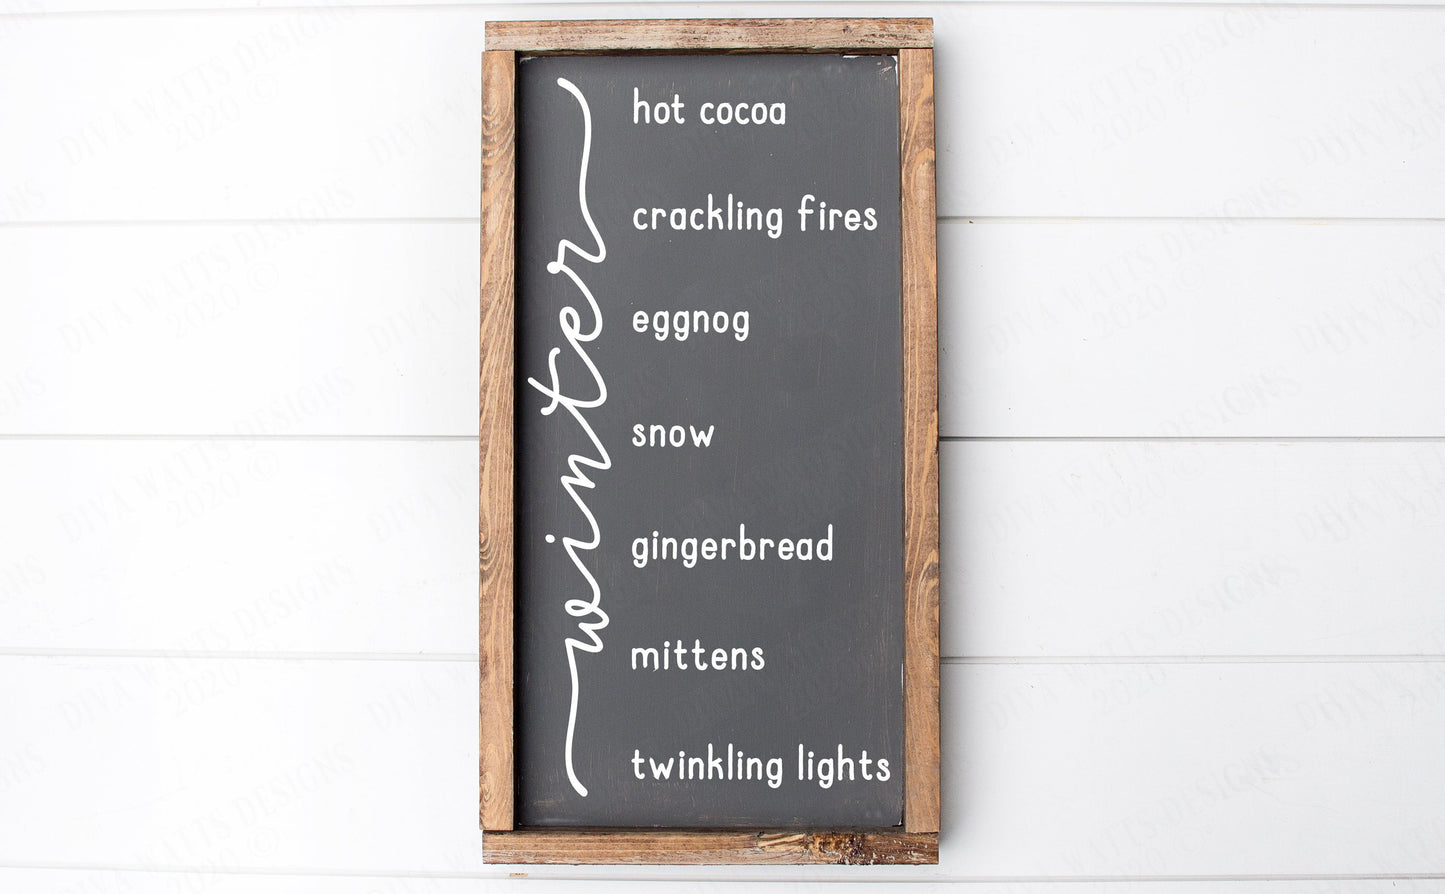 winter
hot cocoa
crackling fires
eggnog
snow
gingerbread
mittens
twinkling lights
DIVA WATTS DESIGNS
2020 ©